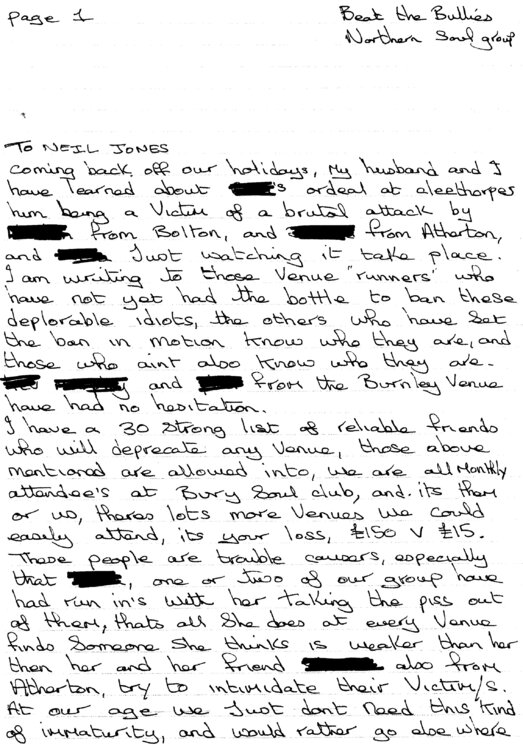 page 1
Beat the Bullies
Northern Soul group
TO NEIL JONES
coming back off our holidays, My husband and I
have learned about s ordeal at cleethorpes
him being a Victim of a brutal attack by
n from Bolton, and from Atherton,
and Just watching it take place.
I am writing to those Venue "runners" who
have not yet had the bottle to ban these
deplorable idiots, the others who have set
the ban in motion know who they are, and
those who aint also know who they are.
and from the Burnley Venue
have had no hesitation.
I have a 30 strong list of reliable friends
who will deprecate any Venue, those above
mentioned are allowed into, we are all Monthly
attendee's at Bury Soul club, and its them
or us, theres lots more Venues we could
easily attend, its your loss, £150 V £15.
These people are trouble causers, especially
that , one or two of our group have
had run in's with her taking the piss out
of them, thats all She does at every Venue
finds Someone She thinks is weaker than her
then her and her friend also from
Atherton, try to intimidate their Victim/s.
At our age we Just dont need this kind
of immaturity, and would rather go else where